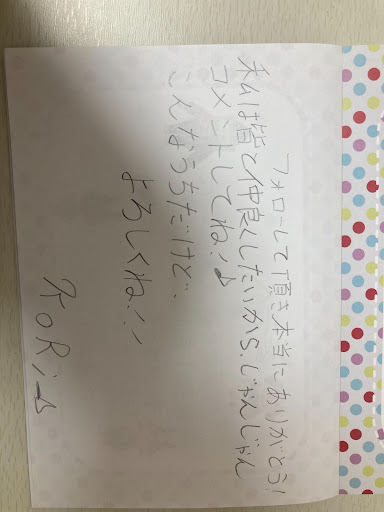 フォローして頂き本当にありがとう!
私は皆と仲良くしたいから、じゃんじゃん
コメントしてね!♪
こんなうちだけど、
よろしくね!!